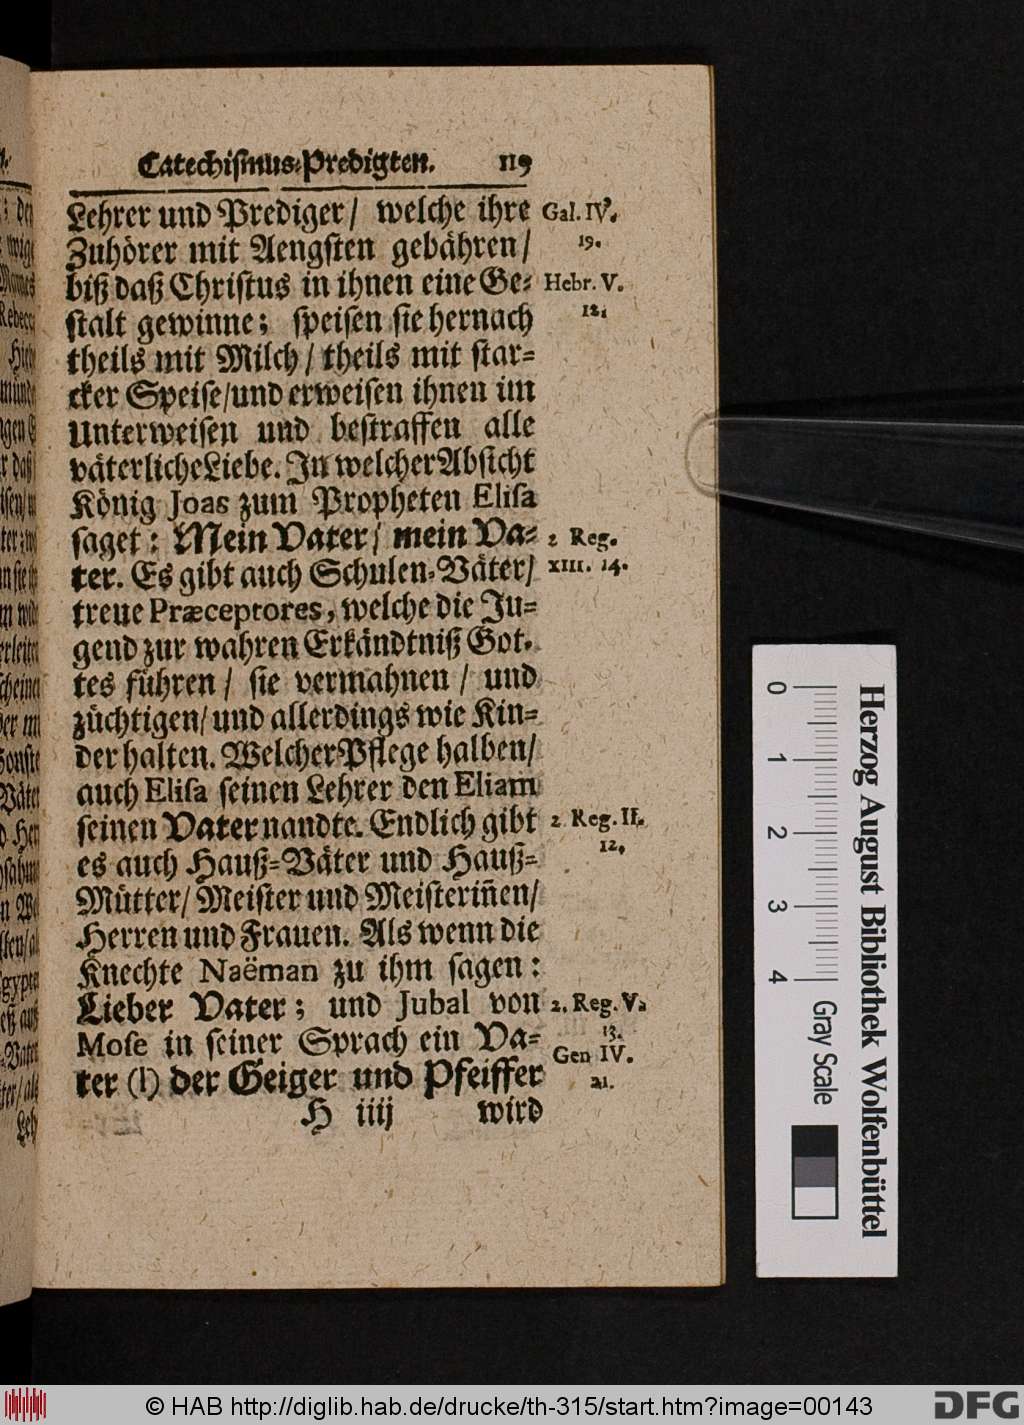 Catechismus-Predigten. 119
Lehrer und Prediger/ welche ihre
Zuhörer mit Aengsten gebähren/
biß daß Christus in ihnen eine Ge-
stalt gewinne; speisen sie hernach
theils mit Milch/ theils mit star-
cker Speise/und erweisen ihnen im
Unterweisen und bestraffen alle
väterliche Liebe. In welcher Absicht
König Joas zum Propheten Elisa
saget: Mein Vater/ mein Va-
ter. Es gibt auch Schulen-Väter/
treue Præceptores, welche die Ju-
gend zur wahren Erkändtniß Got-
tes führen/ sie vermahnen/ und
züchtigen/ und allerdings wie Kin-
der halten. Welcher Pflege halben/
auch Elisa seinen Lehrer den Eliam
seinen Vater nandte. Endlich gibt
es auch Hauß-Väter und Hauß-
Mütter/ Meister und Meisterin̄en/
Herren und Frauen. Als wenn die
Knechte Naëman zu ihm sagen:
Lieber Vater; und Jubal von
Mose in seiner Sprach ein Va-
ter (l) der Geiger und Pfeiffer
H iiij wird
Gal. IV.
19.
Hebr. V.
12.
2 Reg.
XIII. 14.
2 Reg. II.
12.
2. Reg. V.
13.
Gen IV.
21.
Herzog August Bibliothek Wolfenbüttel
0 1 2 3 4
Gray Scale
© HAB http://diglib.hab.de/drucke/th-315/start.htm?image=00143
DFG